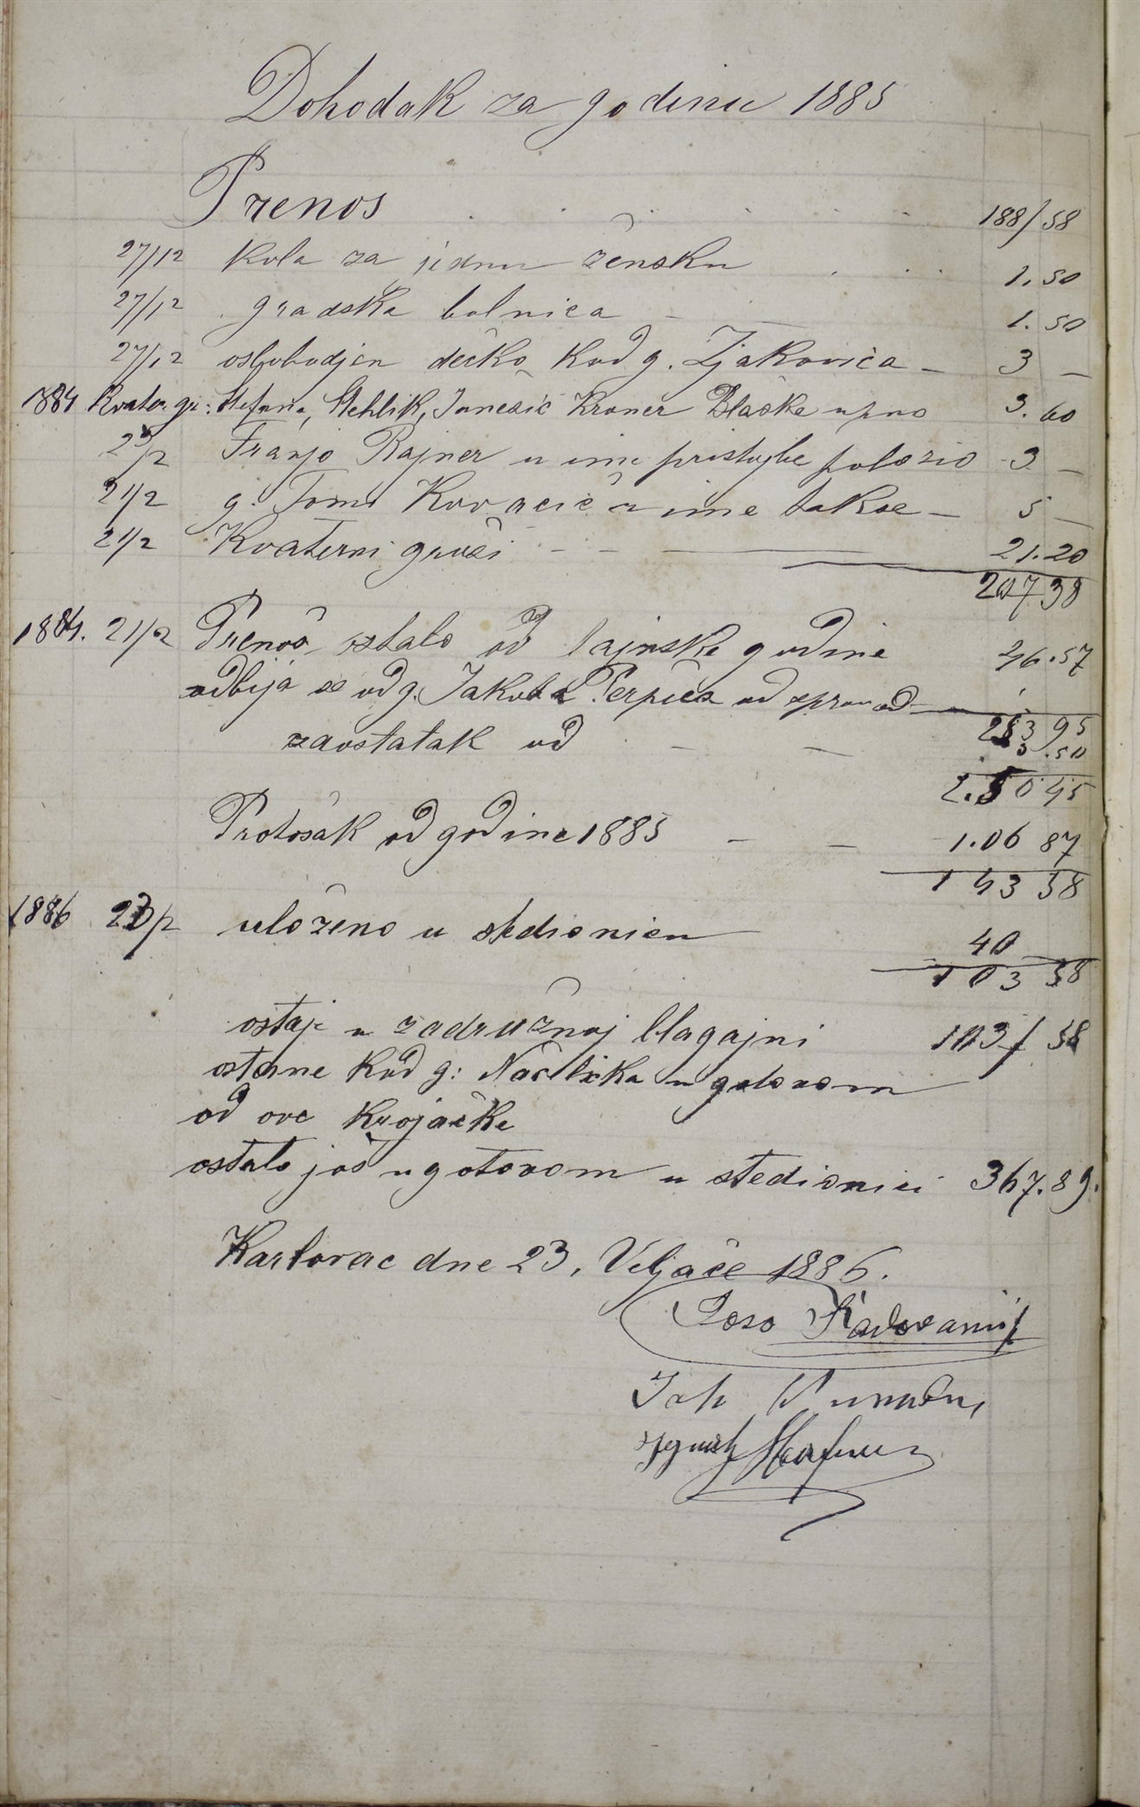 Dohodak za godinu 1885
Prenos 188/58
27/12 kola za jednu žensku 1.50
27/12 gradska bolnica 1.50
27/12 osbobodjen dečko kod g. Zjakovića 3 —
1884 Kvater. gr: Stefana, Stehlik, Janešić Kroner Blaške 3.60
Franjo Rajner u ime pristojbe položio 3 —
21/2 g. Tomo Kovačić u ime takse — 5 —
21/2 Kvaterni groši 21.20
207 38
21/2 Prenos ostalo od lajnske godine 46.57
odbija se od g. Jakoba od
zaostatak od
2.50 45
Protošak od godine 1885 1.06 87
143 58
1886 uloženo u stedionicu 40
103 58
ostaje u zadružnoj blagajni 103/58
ostane kod g: Načelnika u gotovom
od ove krojačke
ostalo još u gotovom u stedionici 367.89.
Karlovac dne 23. Veljače 1886.
Joso Radovanić